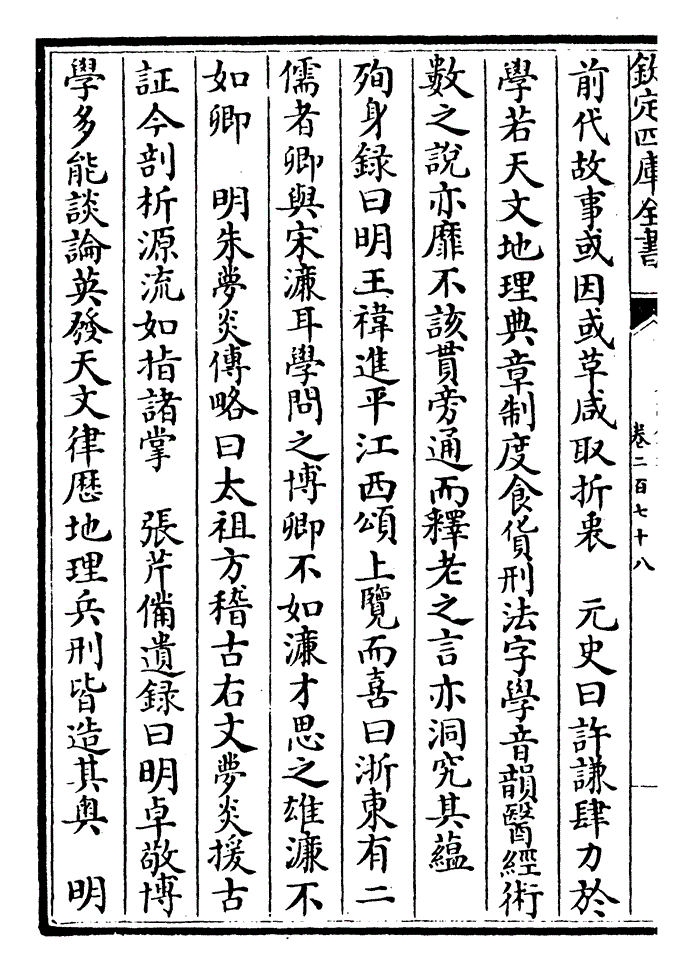 欽定四庫全書
卷二百七十八
前代故事或因或革咸取折衷　元史曰許謙肆力於
學若天文地理典章制度食貨刑法字學音韻醫經術
數之說亦靡不該貫旁通而釋老之言亦洞究其蘊
殉身録曰明王禕進平江西頌上覽而喜曰浙東有二
儒者卿與宋濂耳學問之博卿不如濂才思之雄濂不
如卿　明朱夢炎傳略曰太祖方稽古右文夢炎援古
証今剖析源流如指諸掌　張芹備遺録曰明卓敬博
學多能談論英發天文律厯地理兵刑皆造其奥　明